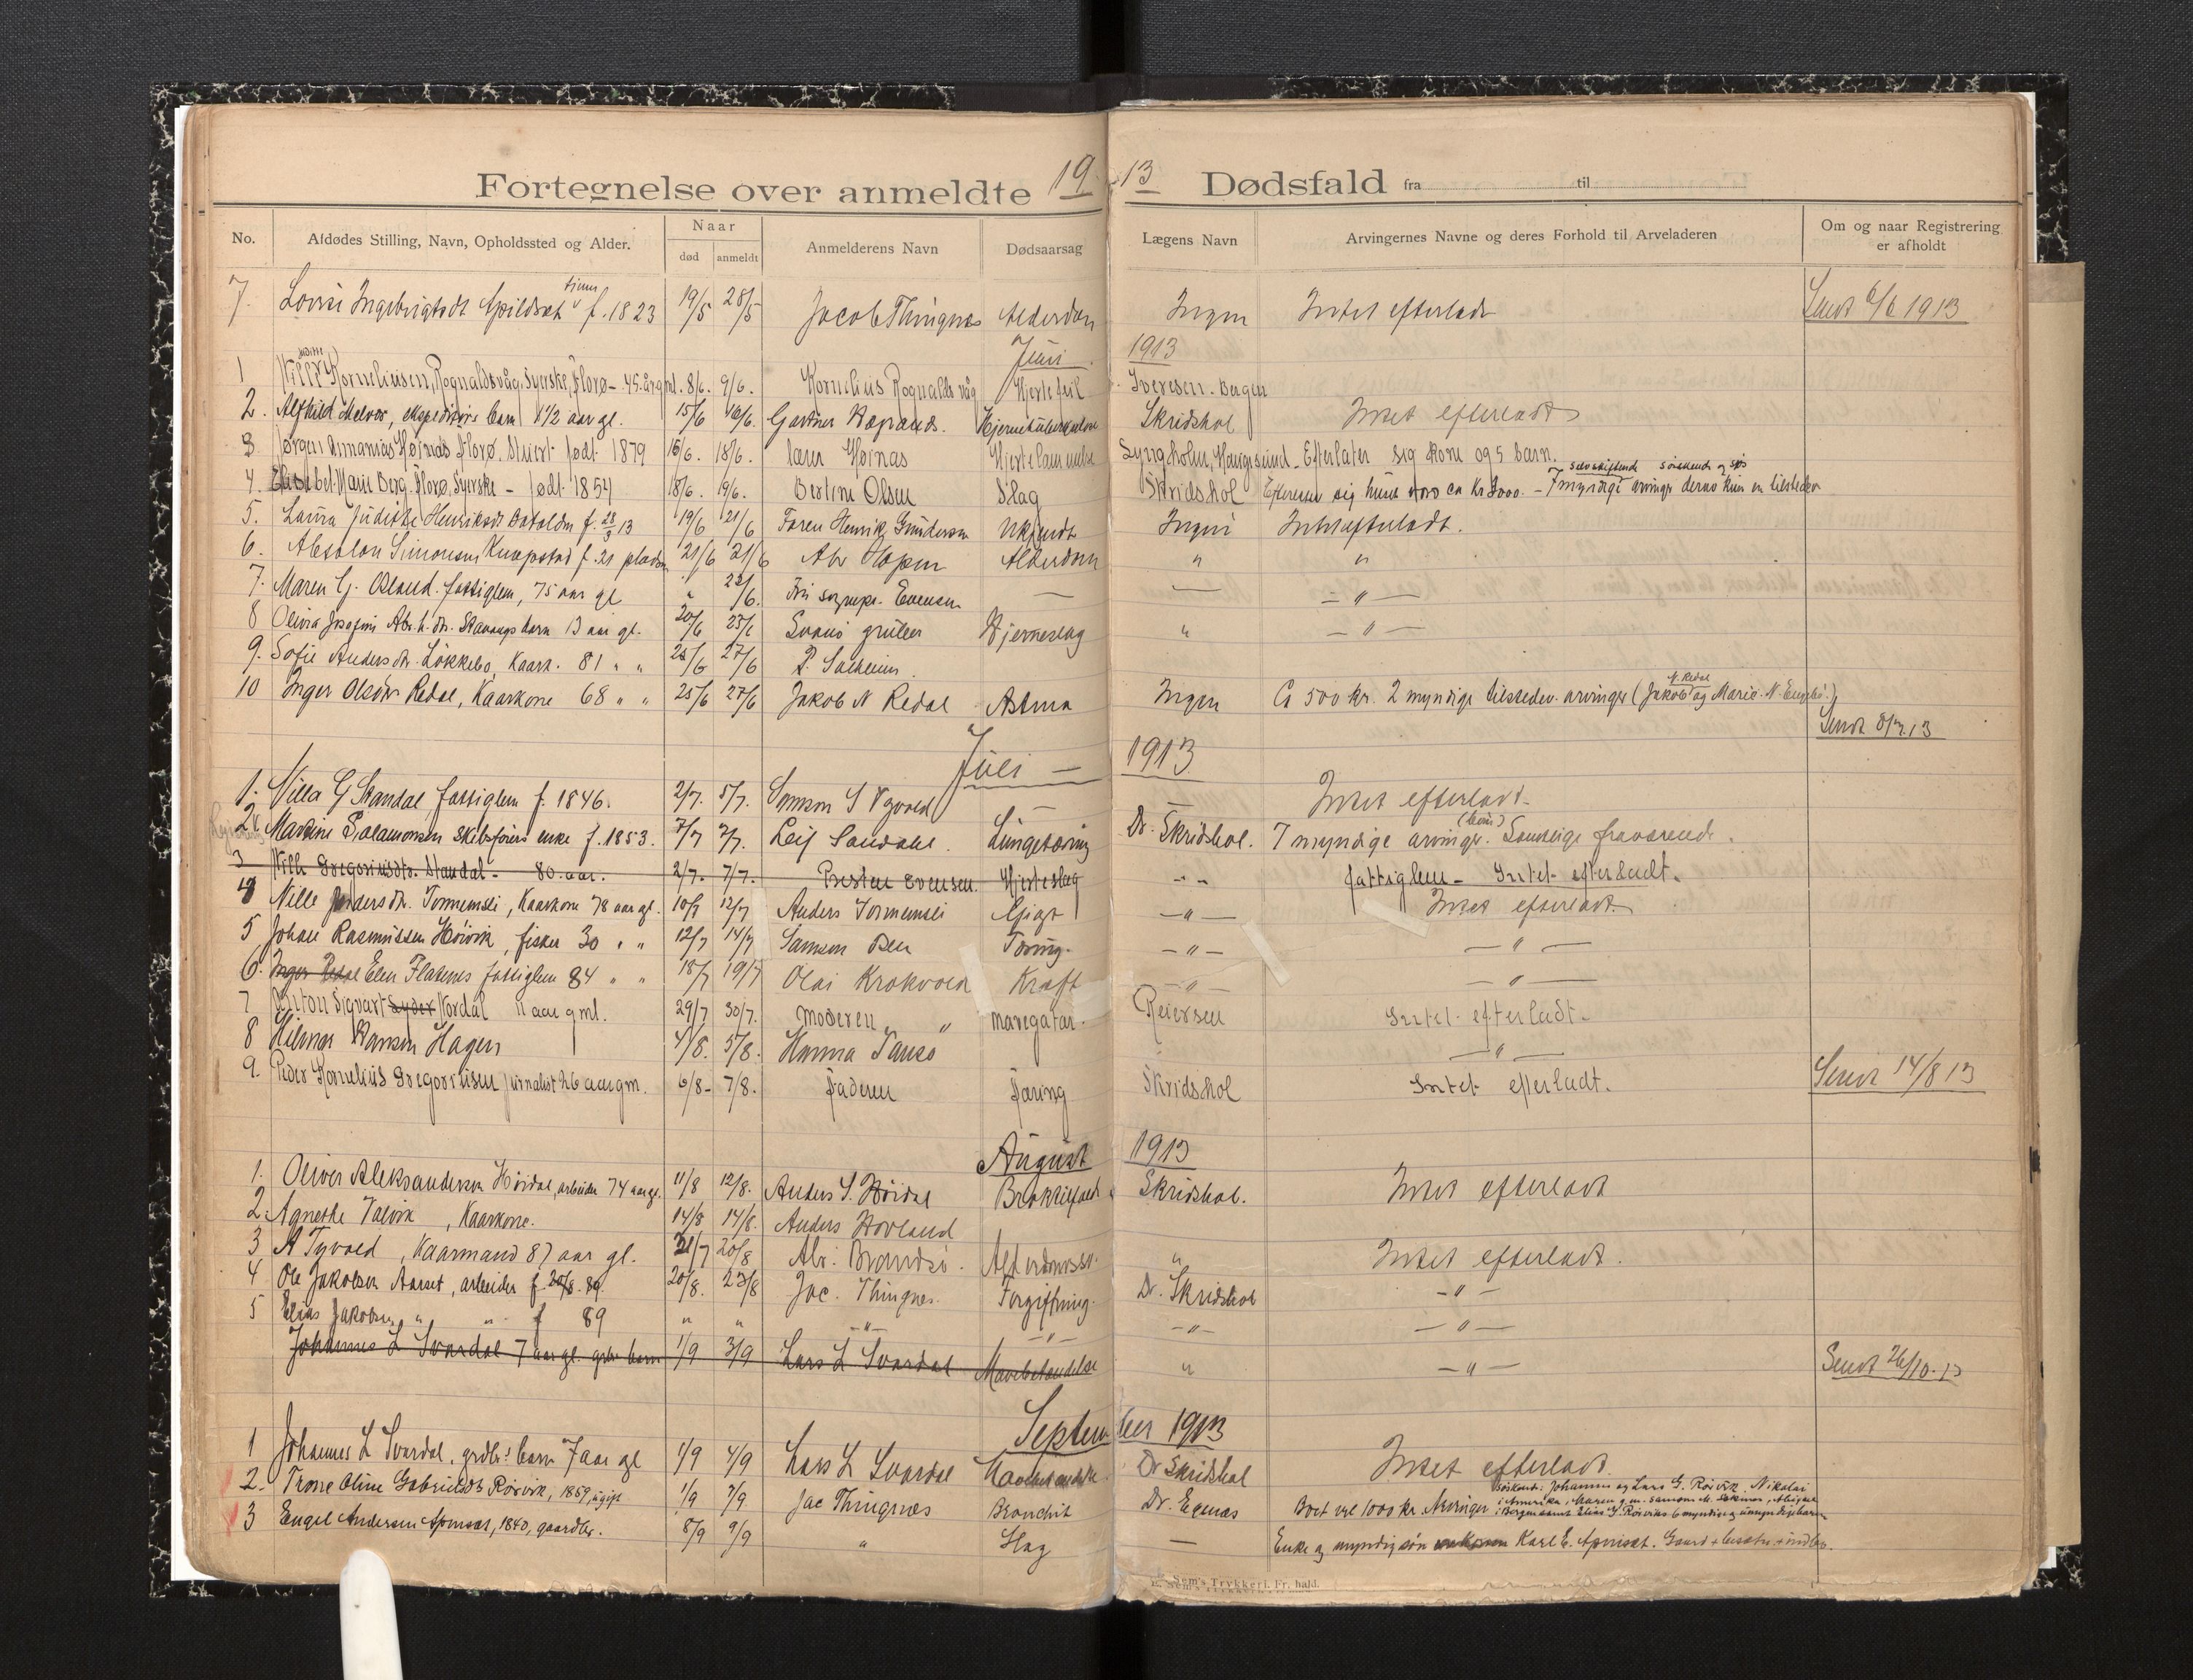 Fortegnelse over anmeldte 1913 Dødsfald fra til
No. Afdødes Stilling, Navn, Opholdssted og Alder. Naar død anmeldt Anmelderens Navn Dødsaarsag Lægens Navn Arvingernes Navne og deres Forhold til Arveladeren Om og naar Registrering er afholdt
7. f. 1823 19/5 28/5 Jacob Thingnes Alderdom Ingen Intet efterladt Sendt 6/6 1913
Juni 1913
1 Korneliusen, Rognaldsvåg, Syerske, Florø - 45 år gml. 8/6. 9/6. Kornelius Rognaldsvåg Hjertefeil Iversen. Bergen
2. Alfhild Melvær, barn 1 1/2 aar gl. 15/6 16/6. Gartner Skridshol Intet efterladt
3 Jørgen Ananias Høinæs Florø. født 1879 16/6. 18/6. Høinæs Hjertelammelse Lyngholm, Haugesund - Efterlater sig kone og 5 barn.
4. Elisabet Marie Berg. Florø, Syerske - født 1854 18/6. 19/6. Bertine Olsen Slag Skridshol Efterlater sig huus ca Kr 3000. - 7 myndige arvinger derav kun en tilstede
5. Laura Judithe Henriksdt Batalden f. 28/3 13 19/6 21/6 Faren Henrik Gundersen Ukjendt Ingen Intet efterladt.
6. Absalon Simonsen Knapstad f. 21 21/6 21/6 Abr Hopen Alderdom " "
7. Maren G. Øslund. fattiglem, 75 aar gl " 22/6. Evensen — — - " -
8 Olivia Josefine Abr.h. dtr. Stavang barn 13 aar gl. 20/6 23/6 Hjerneslag " - " -
9. Sofie Andersdtr. Løkkebø, Kaark. 81 " " 25/6 27/6 P. Solheim
10 Inger Olsdtr Redal, Kaarkone 68 " " 25/6 27/6 Jakob N Redal Astma Ingen Ca 500 kr. 2 myndige tilstedev. arvinger (Jakob N. Redal og Marie N. Engebø.)
Sendt 8/7.13
Juli — 1913
1. Nilla G Standal fattiglem f. 1846. 2/7. 5/7. Samson S Tyvold — — Intet efterladt.
2. Martine Salamonsen skibsførers enke f. 1853. 7/7 7/7. Leif Sandahl. Lungetæring Dr. Skridshol. 7 myndige arvinger (børn). Samtlige fraværende.
3 Nille Gregoriusdtr. Standal - 80 aar. 2/7. 7/7. Presten Evensen. Hjerteslag - " - fattiglem - Intet efterladt.
4 Nille Andersdtr. Tonnemsli, Kaarkone 78 aar gl. 10/7 12/7 Anders Tonnemsli Gigt — " — Intet efterladt.
5 Johan Rasmussen Høivik, fisker 30 " " 12/7 14/7 Samson Tæring. — " — — " —
6. Inger Redal Elen Flatenes fattiglem 84 " " 18/7 19/7 Olai Krokvold Kræft — " — — " —
7 Anton Sigvart Nordal 11 aar gml. 29/7 30/7. Moderen " mavegatar. Reiersen Intet efterladt.
8 Hilmar Hansen Hagen 4/8. 5/8. Hanna Tansø — " —
9. Peder Kornelius Gregoriusen journalist 26 aar gm. 6/8 - 7/8. Faderen Tæring Skridshol Intet efterladt. Sendt 14/8 13
August 1913
1. Oliver Aleksandersen Høidal, arbeider 74 aar gl. 11/8 12/8. Anders S. Høidal Skridshol. Intet efterladt
2. Agnethe Talvik, Kaarkone. 14/8 14/8. Anders Hovland
3 A Tyvold, Kaarmand 87 aar gl. 31/7 20/8 Abr. Brandsø. " Intet efterladt.
4 Ole Jakobsen Aarset, arbeider f. 20/8. 89. 20/8. 23/8 Jac. Thingnes. Forgiftning. Dr. Skridshol - " -
5 Elias Jakobsen " " f 89 " " — " — — " — — " — — " —
Johannes L Svardal 7 aar gl. grbr. barn 1/9 3/9 Lars L Svardal " - " - Sendt 26/10. 13
September 1913
1 Johannes L Svardal, grdbr.s barn 7 aar gl 1/9 4/9 Lars L Svardal Dr Skridshol Intet efterladt.
2. Trone Oline Gabrielsdt Røivik, 1859, ugift 1/9 7/9 Jac Thingnæs Bronchit Dr. Egenæs Boet vel 1000 kr. Arvinger: Søskend. Johannes og Lars G. Røivik, Nikolai i Amerika, Maren g.m. Samson M. i Bergen samt Elias G. Røiviks 6 myndige og umyndige barn
3 Engel Andersen Apneset, 1840, gaardbr. 8/9 9/9 " Slag — Enke og myndig søn Karl E. Apneset. Gaard + besætn. + indbo.
E. Sem's Trykkeri, Fr.hald.